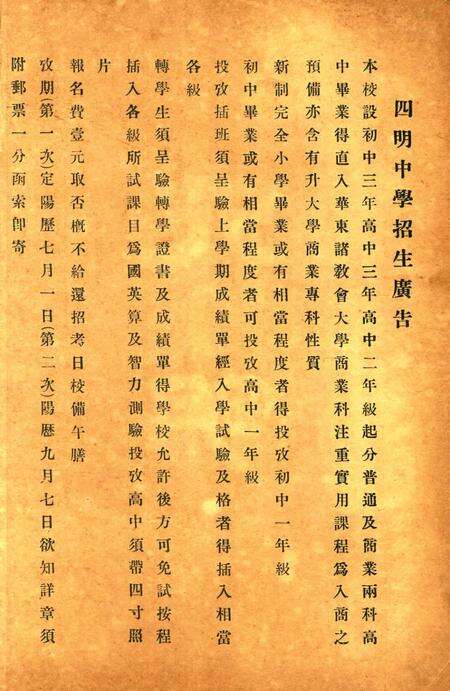 四明中學招生廣告
本校設初中三年高中三年高中二年級起分普通及商業兩科高
中畢業得直入華東諸教會大學商業科注重實用課程爲入商之
預備亦含有升大學商業專科性質
新制完全小學畢業或有相當程度者得投攷初中一年級
初中畢業或有相當程度者可投攷高中一年級
投攷插班須呈驗上學期成績單經入學試驗及格者得插入相當
各級
轉學生須呈驗轉學證書及成績單得學校允許後方可免試按程
插入各級所試課目爲國英算及智力測驗投攷高中須帶四寸照
片
報名費壹元取否概不給還招考日校備午膳
攷期(第一次)定陽歷七月一日(第二次)陽歷九月七日欲知詳章須
附郵票一分函索卽寄